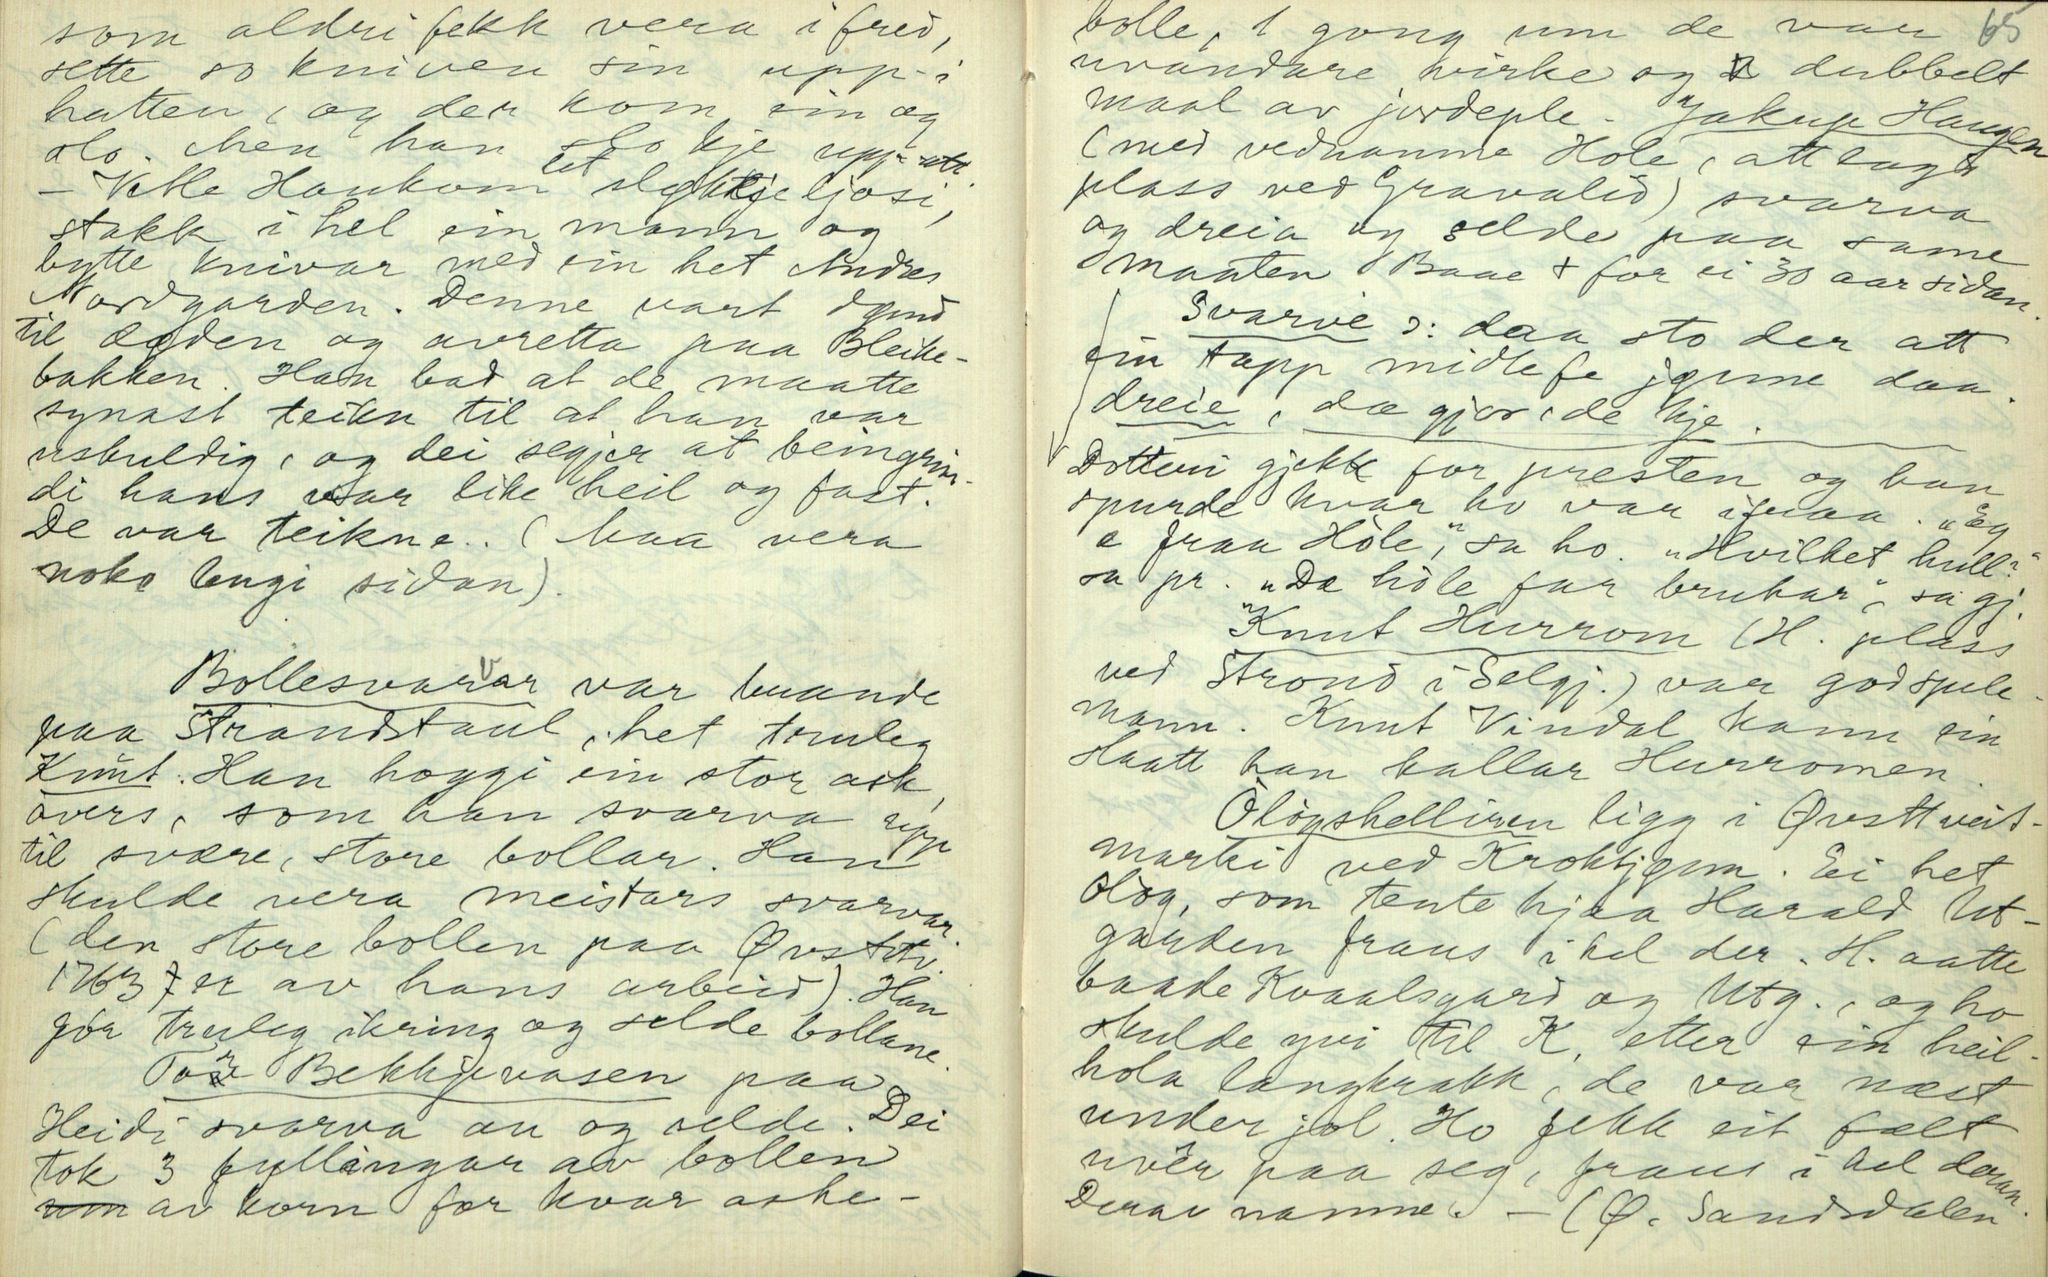 som aldri fekk vera i fred,
sette so kniven sin upp i
hatten, og der kom ein og
slo. Men han slo kje upp att.
- Vetle Haukom let sløkkje ljosi,
stakk i hel ein mann og
bytte knivar med ein het Andres
Nordgarden. Denne vart dømd
til døden og avretta paa Bleike-
bakken. Han bad at de maatte
synast teikn til at han var
uskuldig, og dei segjer at beingrin-
di hans var like heil og fast.
De var teikne.. (Maa vera
noko lengi sidan).
Bollesvarvar var buande
paa Strandstaul, het truleg
Knut. Han hoggi ein stor ask,
övers, som han svarva upp
til svære, store bollar. Han
skulde vera meistars svarvar.
(den store bollen paa Øvsttv.
1763 er av hans arbeid). Han
gjör truleg ikring og selde bollane.
Tore Bekkjevasen paa
Heidi svarva au og selde. Dei
tok 3 fyllingar av bollen
av korn for kvar aske-
65
bolle, 1 gong um de var
uvandare virke og dubbelt
maal av jordeple. - Jakup Haugen
(med vednamne Hole, attlagd
plass ved Gravalid) svarva
og dreia og selde paa same
maaten Baae + for ei 30 aar sidan.
Svarve ɔ: daa sto der att
ein tapp midt i jønne daa.
dreie, dæ gjor de kje.
Dotteri gjekk for presten og han
spurde kvar ho var ifraa. "Eg
e fraa Höle," sa ho. "Hvilket hull?"
sa pr. "Da höle far brukar", sa gj.
"Knut Hurrom (H. plass
ved Strond i Selgj.) var god spele-
mann. Knut Vindal kann ein
slaatt han kallar Hurromen.
Ölögshelliren ligg i Øvsttveit-
marki ved Kroktjønn. Ei het
Olög, som tente hjaa Harald Ut-
garden fraus i hel der. H. aatte
baade Kvaalsgard og Utg., og ho
skulde yvi til K. etter ein heil-
hola langkrakk, de var næst
under jol. Ho fekk eit fælt
uvêr paa seg, fraus i hel deran.
Derav namne. - (Ø. Sandsdalen